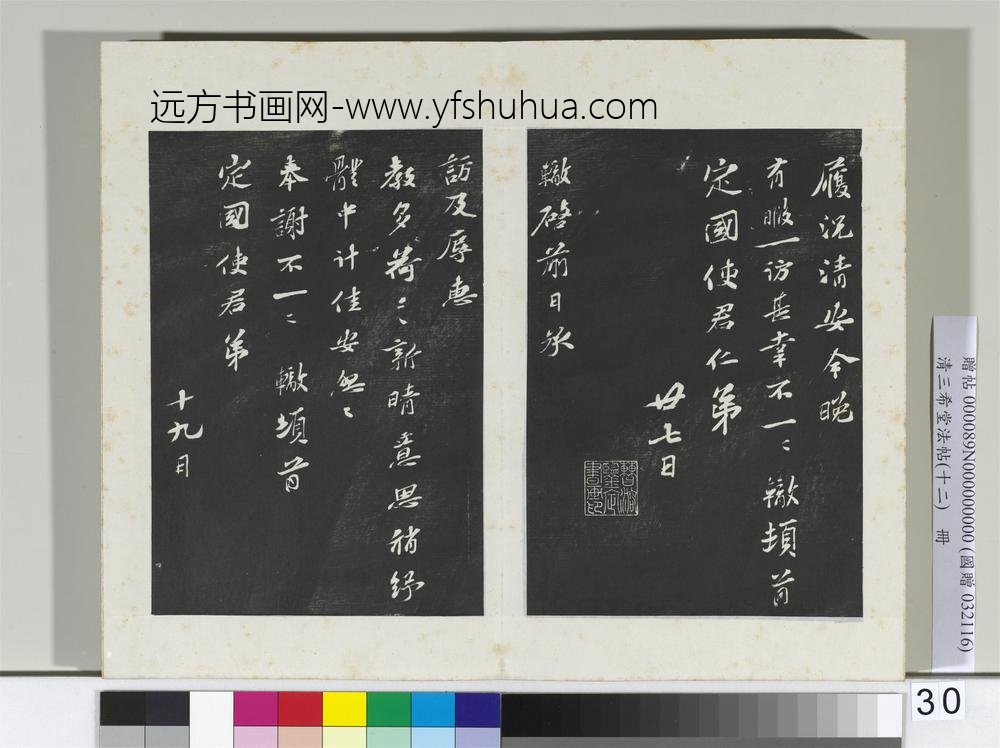 远方书画网-www.yfshuhua.com
履況清安今晚
有暇一訪甚幸不一〻轍頓首
定國使君仁弟
廿七日
轍啓前日承
訪及辱惠
教多荷〻新晴意思稍紓
體中計佳安勉〻
奉謝不一〻轍頓首
定國使君弟
十九日
贈帖 000089N000000000 (國贈 032116)
清三希堂法帖(十二) 冊
30